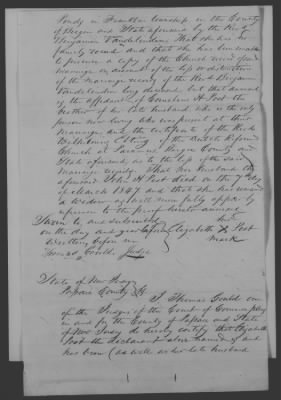 Pond, in Franklin township in the County
of Bergen and State aforesaid by the Revd
Benjamin Vanderlinde. That she has no
family record and that she has been unable
to procure a copy of the Church record of said
marriage on account of the loss or destruction
of the marriage records of the Revd Benjamin
Vanderlinde long deceased but that annexed
is the affidavit of Cornelius A Post the
brother of her late husband who is the only
person now living who was present at their
marriage and the certificate of the Revd
of the Dutch Reformed
Church at Paramus Bergen County and
State aforesaid, as to the loss of the said
marriage records. That her husband the
aforesaid John A Post died on the 7th day
of March 1847 and that she has remained
a widow as will more fully appear by
reference to the proof hereto annexed
Sworn to and subscribed her
on the day and year before Elizabeth X Post
written before me mark
Thomas Gould, Judge
State of New Jersey
Passaic County SS.
I Thomas Gould one
of the Judges of the Court of Common pleas
in and for the County of Passaic and State
of New Jersey do hereby certify that Elizabeth
Post the declarant above named and
has been (as well as her late husband